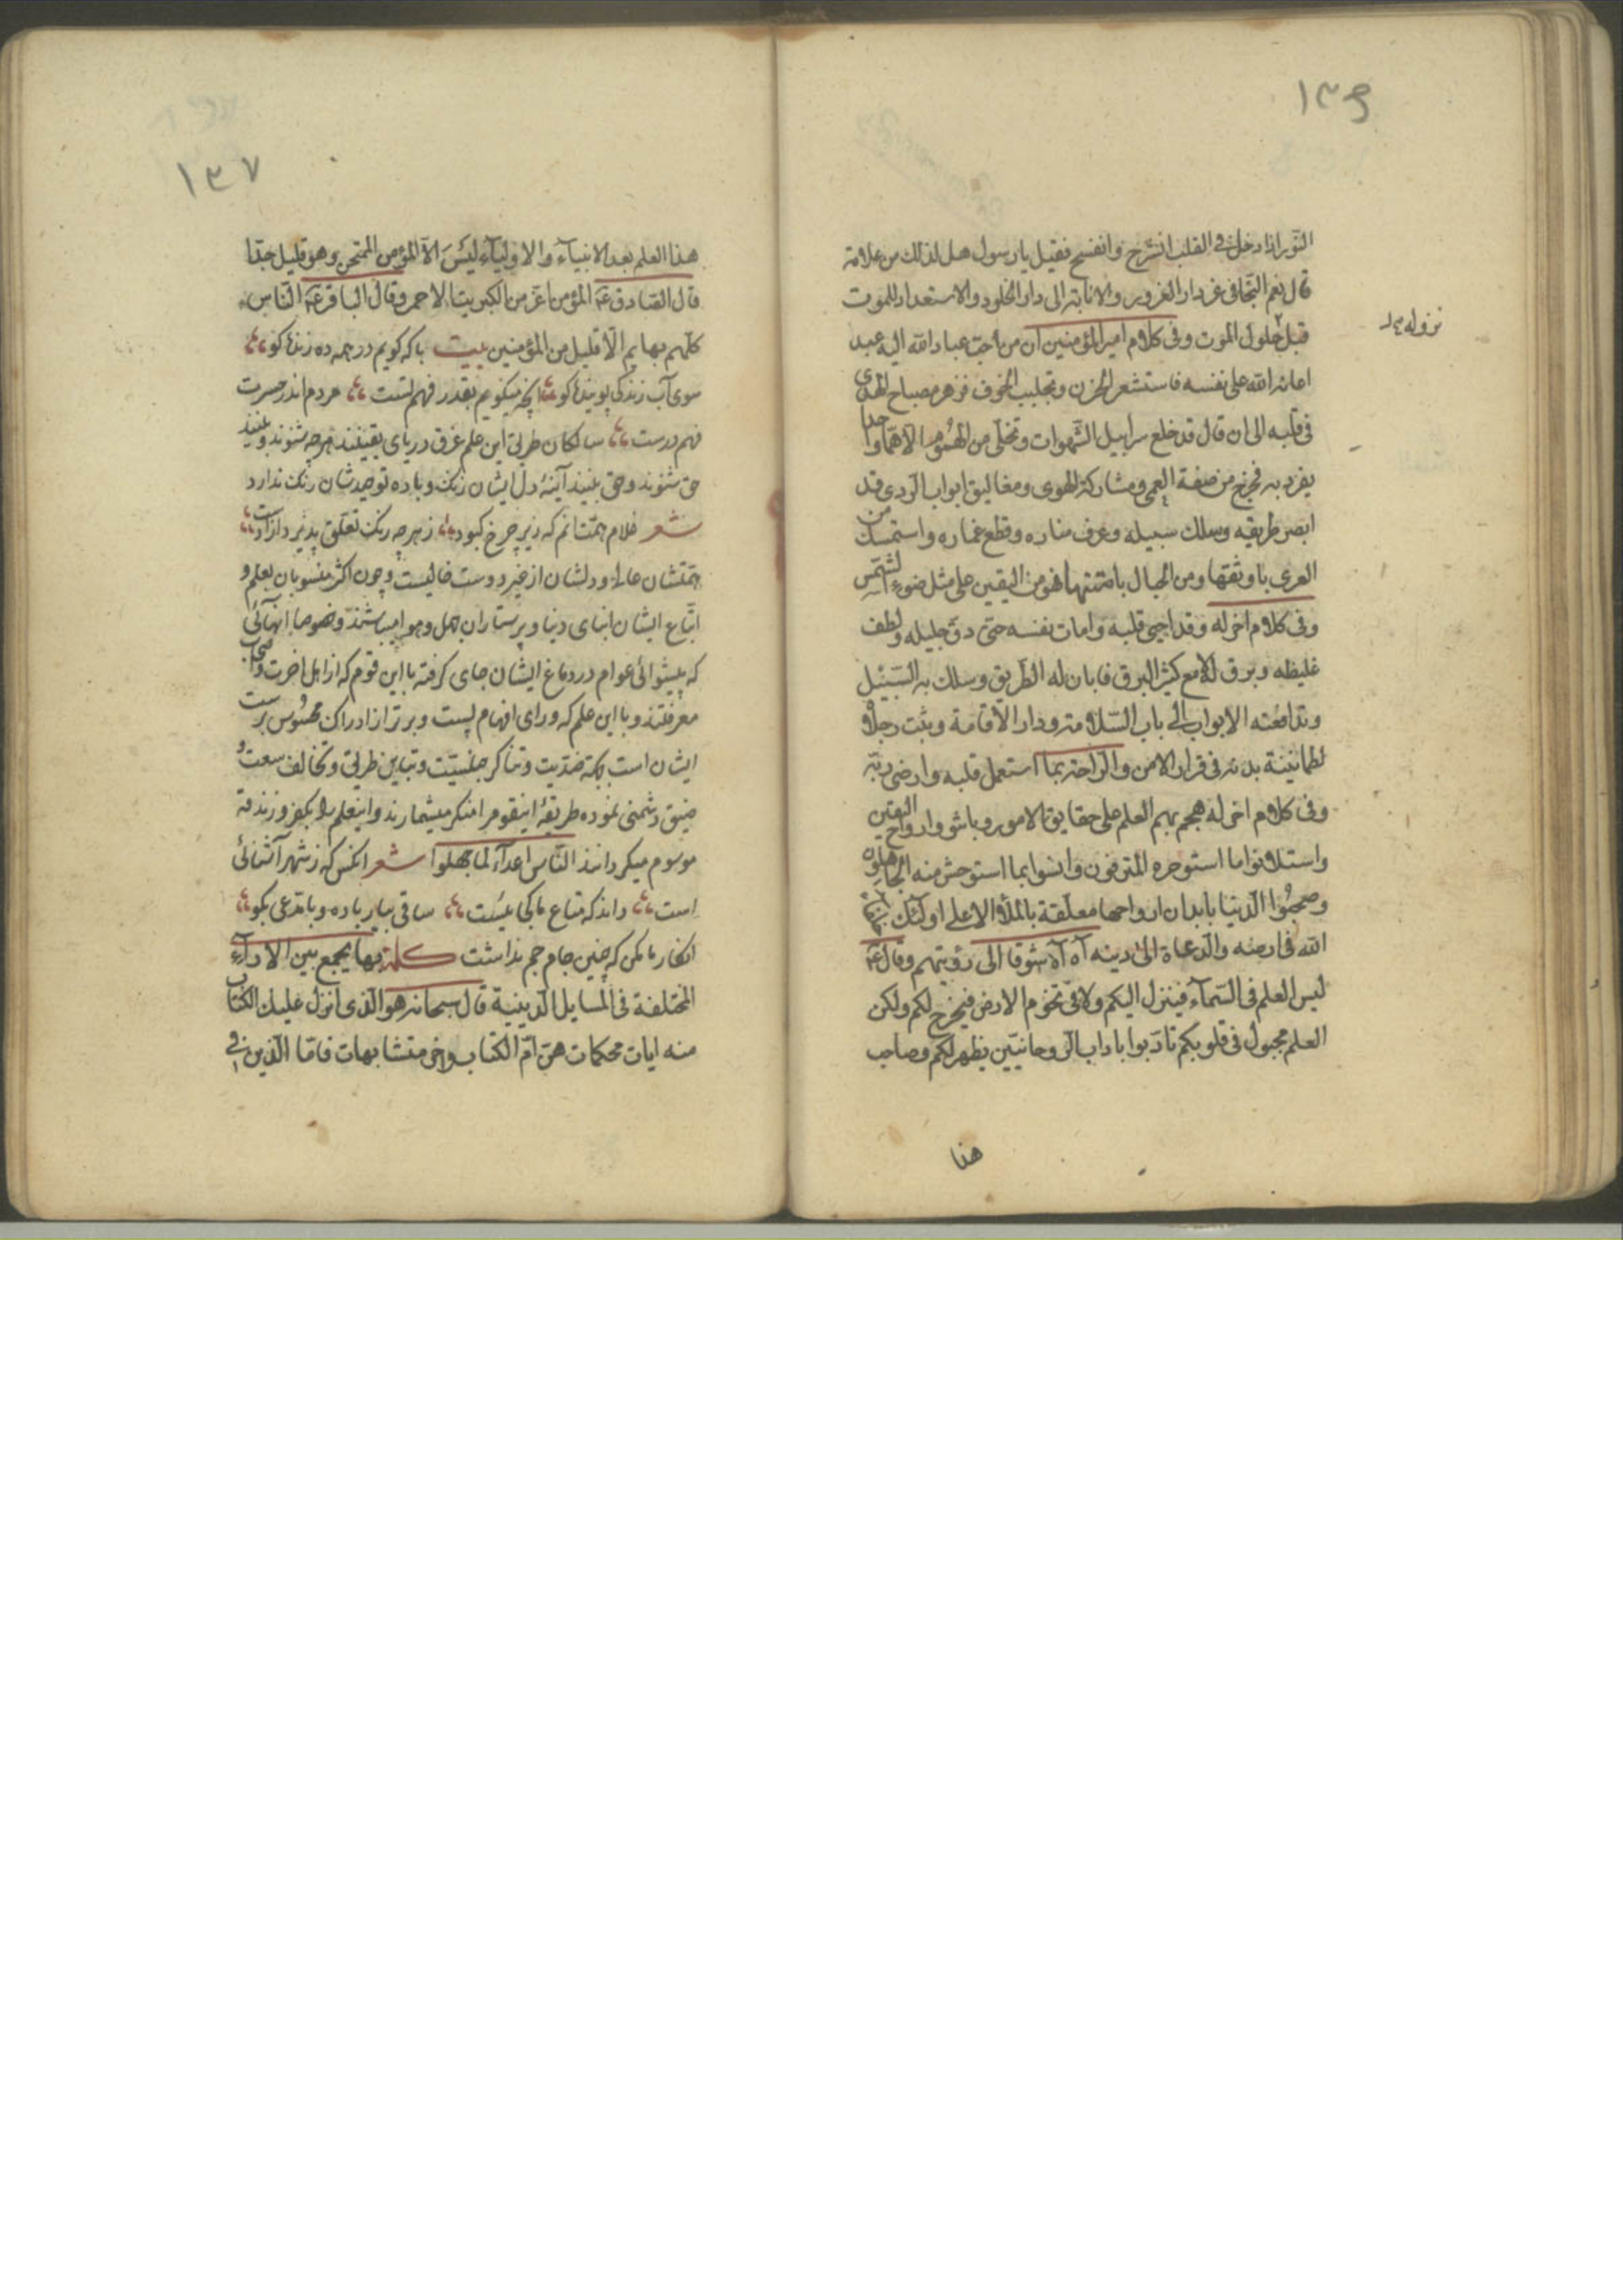 ١٣٤
النور اذا دخل فی القلب انشرح و انفسح فقیل یا رسول هل لذلك من علامة
قال نعم التجافی عن دار الغرور و الانابة الی دار الخلود و الاستعداد للموت
قبل حلول الموت و فی کلام امیر المؤمنین ان من احب عباد الله الیه عبد
نزوله
اعانه الله علی نفسه فاستشعر الحزن و تجلبب الخوف فزهر مصباح الهدی
فی قلبه الی ان قال قد خلع سرابیل الشهوات و تخلی من الهموم الا هما واحدا
یفرد به فخرج من صفة العمی و مشارکة الهوی و مغالیق ابواب الردی قد
ابصر طریقه و سلك سبیله و عرف مناره و قطع غماره و استمسك من
العری باوثقها و من الحبال بامتنها فهو من الیقین علی مثل ضوء الشمس
و فی کلام اخر له و قد احیی قلبه و امات نفسه حتی دق جلیله و لطف
غلیظه و برق لامع کثیر البرق فابان له الطریق و سلك به السبیل
و تدافعته الابواب الی باب السلامة و دار الاقامة و ثبت رجلاه
لطمانینة بدنه فی قرار الامن و الراحة بما استعمل قلبه و ارضی ربه
و فی کلام اخر له هجم بهم العلم علی حقایق الامور و باشروا روح الیقین
و استلانوا ما استوعره المترفون و انسوا بما استوحش منه الجاهلون
و صحبوا الدنیا بابدان ارواحها معلقة بالملأ الاعلی اولئك
الله فی ارضه و الدعاة الی دینه آه آه شوقا الی رؤیتهم و قال ع
لیس العلم فی السماء فینزل الیکم و لا فی تخوم الارض فیخرج لکم و لکن
العلم مجبول فی قلوبکم تادبوا باداب الروحانیین یظهر لکم و صاحب
هذا
١٣٧
هذا العلم بعد الانبیاء و الاولیاء لیس الا المؤمن الممتحن و هو قلیل جدا
قال الصادق ع المؤمن اعز من الکبریت الاحمر و قال الباقر ع الناس
کلهم بهایم الا قلیل من المؤمنین بیت با که کویم در همه ده زنده کو
سوی آب زندکی پوینده کو انچه میکویم بقدر فهم تست مردم اندر حسرت
فهم درست سالکان طریق این علم غرق دریای یقینند هرچه شنوند و بینند
حق شنوند و حق بینند آینهٔ دل ایشان زنك و باده توحیدشان رنك ندارد
شعر غلام همت انم که زیر چرخ کبود ز هر چه رنك تعلق پذیرد ازادست
همتشان عالی و دلشان از غیر دوست خالیست و چون اکثر منسوبان بعلم و
اتباع ایشان ابنای دنیا و پرستاران جهل و هوا میباشند و خصوصا انهائی
که پیشوائی عوام در دماغ ایشان جای کرفته با این قوم که از اهل اخرت و اصحاب
معرفتند و با این علم که ورای افهام پست و برتر از ادراك محسوس پرست
ایشان است بحکم ضدیت و تناکر جنسیت و تباین طریق و تخالف سعت و
ضیق دشمنی نموده طریقهٔ اینقوم را منکر میشمارند و اینعلم را بکفر و زندقه
موسوم میکردانند الناس اعداء لما جهلوا شعر انکس که ز شهر آشنائی
است داند که متاع ما کجائیست ساقی بیار باده و با مدعی بکو
انکار ما مکن که چنین جام جم نداشت کلمة بها یجمع بین الاراء
المختلفة فی المسایل الدینیة قال سبحانه هو الذی انزل علیك الکتاب
منه ایات محکمات هن ام الکتاب و اخر متشابهات فاما الذین فی